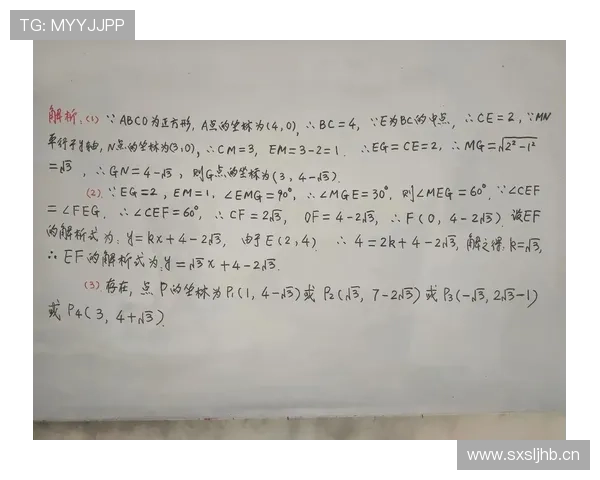 TG: MYYJJPP
解析:(1) ∵ABCD为正方形, A点的坐标为(4,0), ∴BC=4, ∵E为BC的中点, ∴CE=2, ∵MN
平行于y轴, N点的坐标为(3,0), ∴CM=3, EM=3-2=1. ∴EG=CE=2, ∴MG=√2²-1²
=√3, ∴GN=4-√3, 则G点的坐标为(3, 4-√3).
(2). ∵EG=2, EM=1, ∠EMG=90°, ∴∠MGE=30°, 则∠MEG=60°. ∵∠CEF
=∠FEG, ∴∠CEF=60°, ∴CF=2√3, OF=4-2√3, ∴F(0, 4-2√3). 设EF
的解析式为: y=kx+4-2√3, 由于E(2,4) ∴4=2k+4-2√3, 解之得: k=√3,
∴EF的解析式为: y=√3x+4-2√3.
(3) 存在, 点P的坐标为P₁(1, 4-√3)或P₂(√3, 7-2√3)或P₃(-√3, 2√3-1)
或P₄(3, 4+√3).
www.sxsljhb.cn